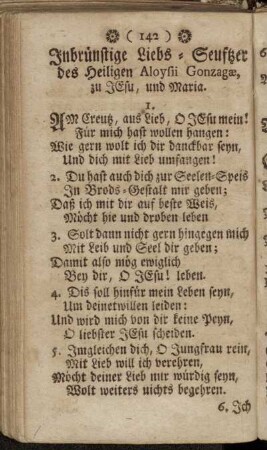 ( 142 )
Inbrünstige Liebs-Seuftzer
des Heiligen Aloysii Gonzagæ,
zu JEsu, und Maria.
1.
AM Creutz, aus Lieb, O JEsu mein!
Für mich hast wollen hangen:
Wie gern wolt ich dir danckbar seyn,
Und dich mit Lieb umfangen!
2. Du hast auch dich zur Seelen-Speis
In Brods-Gestalt mir geben;
Daß ich mit dir auf beste Weis,
Möcht hie und droben leben
3. Solt dann nicht gern hingegen mich
Mit Leib und Seel dir geben;
Damit also mög ewiglich
Bey dir, O JEsu! leben.
4. Dis soll hinfür mein Leben seyn,
Um deinetwillen leiden:
Und wird mich von dir keine Peyn,
O liebster JEsu scheiden.
5. Imgleichen dich, O Jungfrau rein,
Mit Lieb will ich verehren,
Möcht deiner Lieb nur würdig seyn,
Wolt weiters nichts begehren.
6. Ich